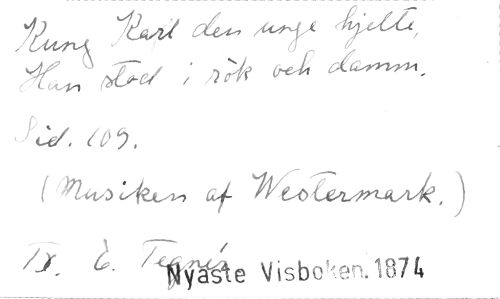 Kung Karl den unge hjelte,
Han stod i rök och damm.
Sid. 109.
(Musiken af Westermark.)
Tx. E. Tegnér
Nyaste Visboken. 1874